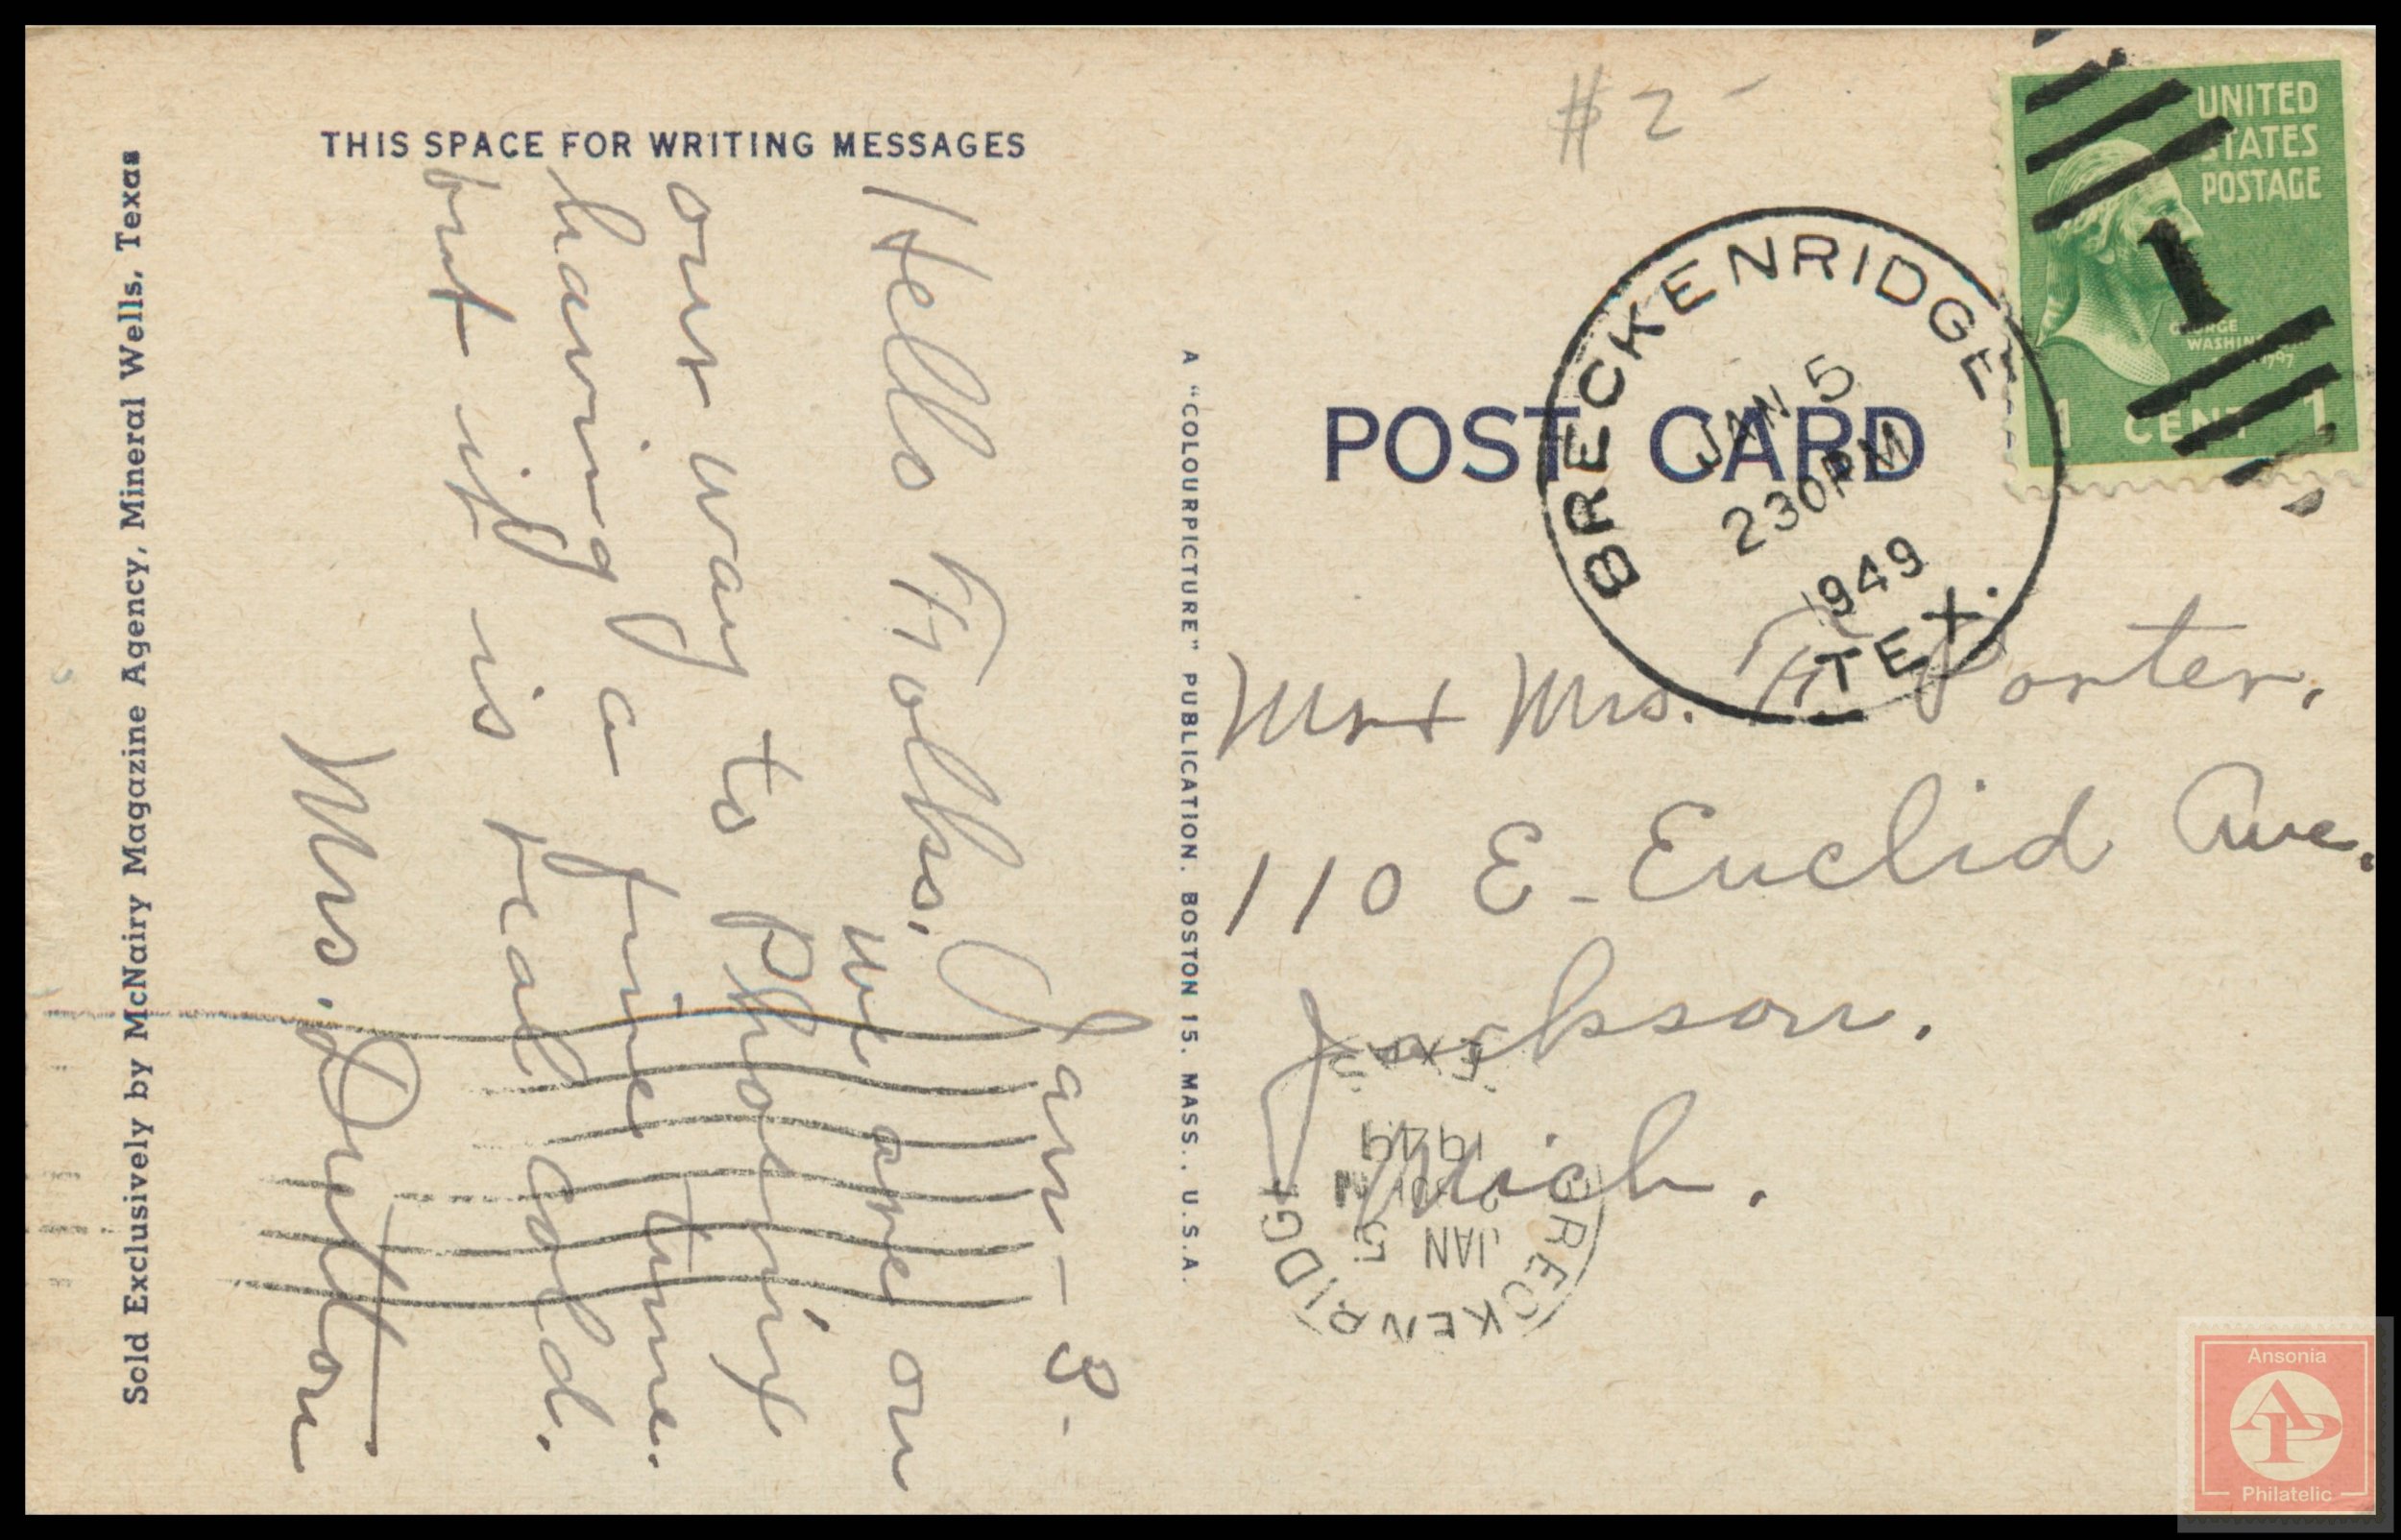 THIS SPACE FOR WRITING MESSAGES
Jan - 3 -
Hello Folks.
We are on
our way to Phoenix
having a fine time.
but it is real cold.
Mrs. Dutton
Sold Exclusively by McNairy Magazine Agency, Mineral Wells, Texas
A "COLOURPICTURE" PUBLICATION. BOSTON 15. MASS., U.S.A.
# 2 -
POST CARD
BRECKENRIDGE
JAN 5
230PM
1949
TEX.
UNITED
STATES
POSTAGE
GEORGE
1
1 CENT 1
Mr + Mrs. Porter.
110 E - Euclid Ave.
Jackson.
Mich.
BRECKENRIDGE
JAN 5
1949
TEXAS
Ansonia
AP
Philatelic